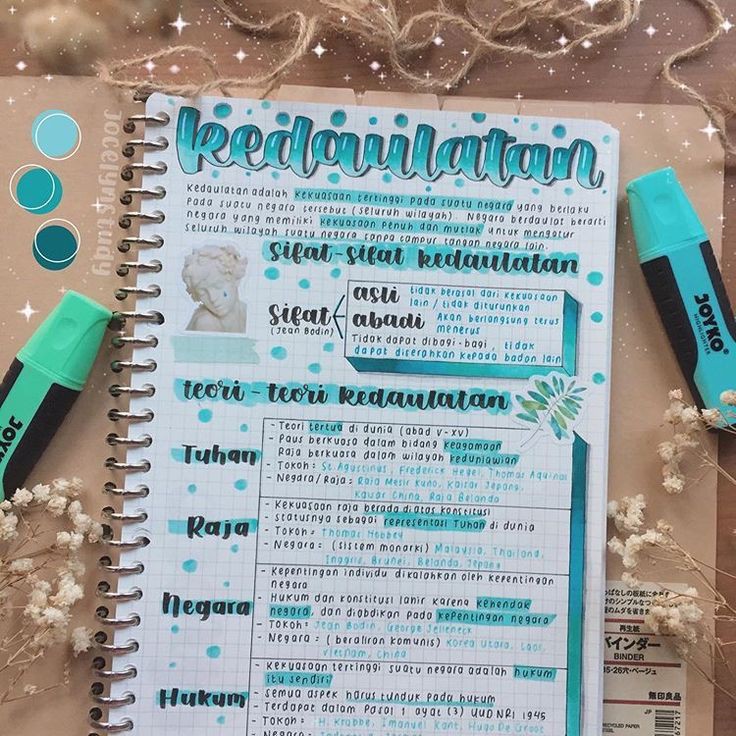 kedaulatan
Kedaulatan adalah kekuasaan tertinggi pada suatu negara yang berlaku
pada suatu negara tersebut (seluruh wilayah). Negara berdaulat berarti
negara yang memiliki kekuasaan penuh dan mutlak untuk mengatur
seluruh wilayah suatu negara tanpa campur tangan negara lain.
sifat-sifat kedaulatan
sifat
(Jean Bodin)
asli tidak berasal dari kekuasaan
lain / tidak diturunkan
abadi Akan berlangsung terus
menerus
Tidak dapat dibagi-bagi, tidak
dapat diserahkan kepada badan lain
teori-teori kedaulatan
Tuhan
- Teori tertua di dunia (abad V-XV)
- Paus berkuasa dalam bidang keagamaan
Raja berkuasa dalam wilayah keduniawian
- Tokoh: St. Agustinus, Frederick Hegel, Thomas Aquinas
- Negara/Raja: Raja Mesir Kuno, Kaisar Jepang,
Kaisar China, Raja Belanda
Raja
- Kekuasaan raja berada diatas konstitusi
- Statusnya sebagai representasi Tuhan di dunia
- Tokoh = Thomas Hobbey
- Negara = (sistem monarki) Malaysia, Thailand,
Inggris, Brunei, Belanda, Jepang
Negara
- Kepentingan individu dikalahkan oleh kepentingan
negara
- Hukum dan konstitusi lahir karena kehendak
negara, dan diabdikan pada kepentingan negara
- Tokoh = Jean Bodin, George Jelleneck
- Negara = (beraliran komunis) Korea Utara, Laos,
Vietnam, China
Hukum
- Kekuasaan tertinggi suatu negara adalah hukum
itu sendiri
- Semua aspek harus tunduk pada hukum
- Terdapat dalam Pasal 1 ayat (3) UUD NRI 1945
- Tokoh = H. Krabbe, Imanuel Kant, Hugo De Groos
Jocelynstudy
JOYKO
HIGHLIGHTER
JOYKO
再生紙
バインダー
BINDER
26穴・ベージュ
無印良品
RECYCLED PAPER
JP